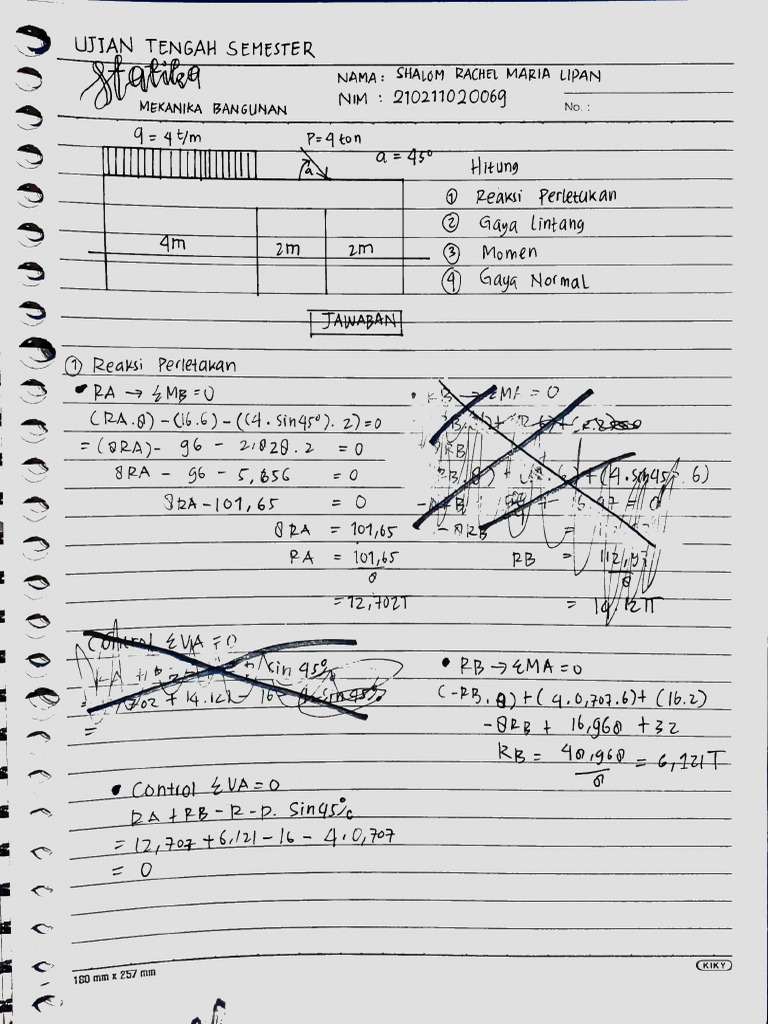 UJIAN TENGAH SEMESTER
Statika
MEKANIKA BANGUNAN
NAMA : SHALOM RACHEL MARIA LIPAN
NIM : 210211020069
No. :
q = 4 t/m
P = 4 ton
a = 45°
a
4m
2m
2m
Hitung
① Reaksi Perletakan
② Gaya lintang
③ Momen
④ Gaya Normal
JAWABAN
① Reaksi Perletakan
• RA → ΣMB = 0
(RA.8) - (16.6) - ((4. sin45°). 2) = 0
= (8RA) - 96 - 2.828.2 = 0
8RA - 96 - 5,656 = 0
8RA - 101,65 = 0
8RA = 101,65
RA = 101,65
8
= 12,702T
ΣMA = 0
(4.sin45 . 6)
RB =
8
= 14,12T
Control ΣVA = 0
sin 45°
• RB → ΣMA = 0
(-RB.8) + (4.0,707.6) + (16.2)
-8RB + 16,968 + 32
RB = 48,968 = 6,121T
8
• Control ΣVA = 0
RA + RB - R - P. Sin45°
= 12,707 + 6,121 - 16 - 4.0,707
= 0
180 mm x 257 mm
KIKY